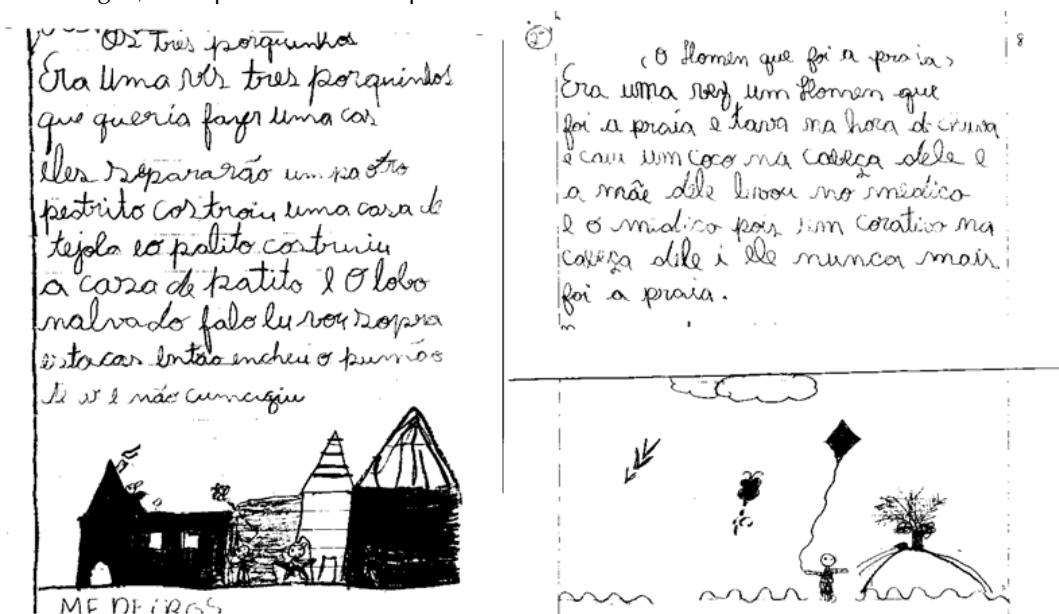 Os três porquinhos
Era uma vês tres porquinhos
que queria fazer uma cas
eles separarão um pa otro
pestrito costroiu uma casa de
tejola eo palito costruiu
a casa de patito e O lobo
malvado falo lu vou sopra
esta cas então encheu o pumão
e não cumcigiu
MEDEIROS
2º
8
(O Homen que foi a praia)
Era uma vez um Homen que
foi a praia e tava na hora d chuva
e caiu um coco na cabeça dele e
a mãe dele levou no médico
e o midico pois um corativo na
cabeça dele i ele nunca mais
foi a praia.